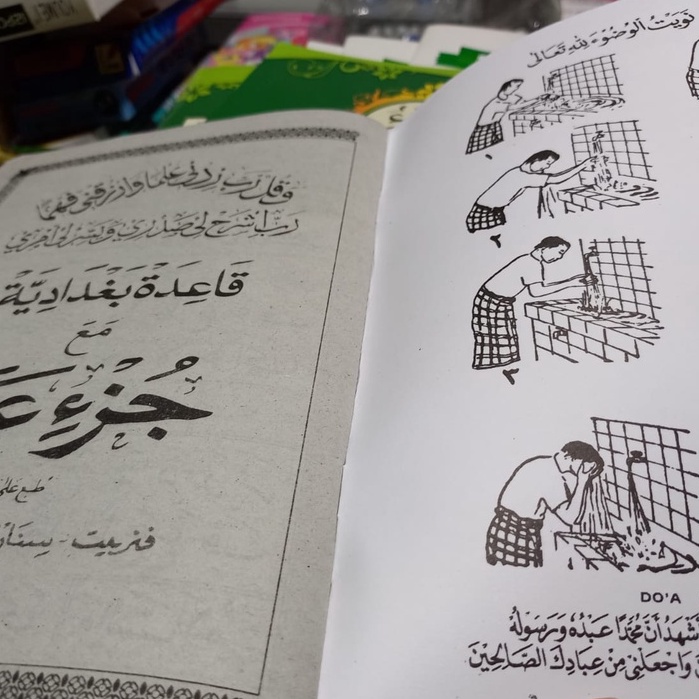 وقل رب زدني علما وارزقني فهما
رب اشرح لي صدري ويسر لي امري
قَاعِدَة بَغْدَادِيَّة
مَعَ
جُزْءِ
طبع على
فنربيت - سينار
نَوَيْتُ الْوُضُوْءَ لِلّٰهِ تَعَالَى
١
٢
٣
DO'A
أَشْهَدُ أَنَّ مُحَمَّدًا عَبْدُهُ وَرَسُوْلُهُ
وَاجْعَلْنِيْ مِنْ عِبَادِكَ الصَّالِحِيْنَ